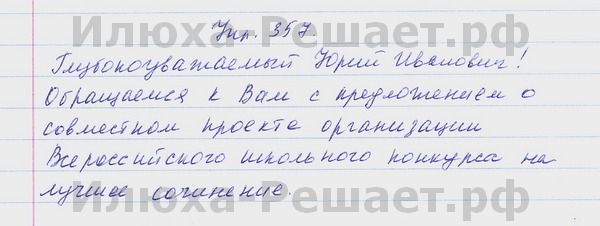 Илюха-Решает.рф
Упр. 357.
Глубокоуважаемый Юрий Иванович!
Обращаемся к Вам с предложением о
совместном проекте организации
Всероссийского школьного конкурса на
лучшее сочинение.
Илюха-Решает.рф